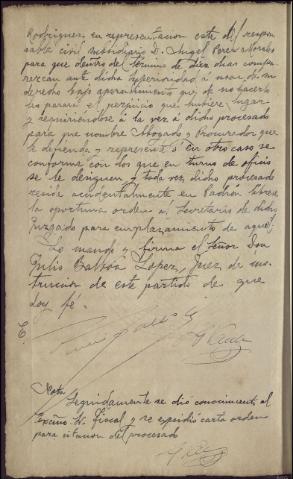 Rodriguez, en representacion este del respon-
sable civil subsidiario D. Angel Perez Morales
para que dentro del término de diez dias compa-
rezcan ante dicha Superioridad á usar de su
derecho bajo apercibimiento que de no hacerlo
les parará el perjuicio que hubiere lugar
y requiriéndose á la vez á dicho procesado
para que nombre Abogado y Procurador que
le defienda y represente ó en otro caso se
conforma con los que en turno de oficio
se le designen y toda vez dicho procesado
reside accidentalmente en Padrón librese
la oportuna orden al Secretario de dicho
Juzgado para emplazamiento de aquel.
Lo mandó y firma el Señor Don
Julio Lopez, Juez de ins-
truccion de este partido de que
doy fé.
Nota
Seguidamente se dió conocimiento al
Excmo. Sr. Fiscal y se expidió carta orden
para citacion del procesado